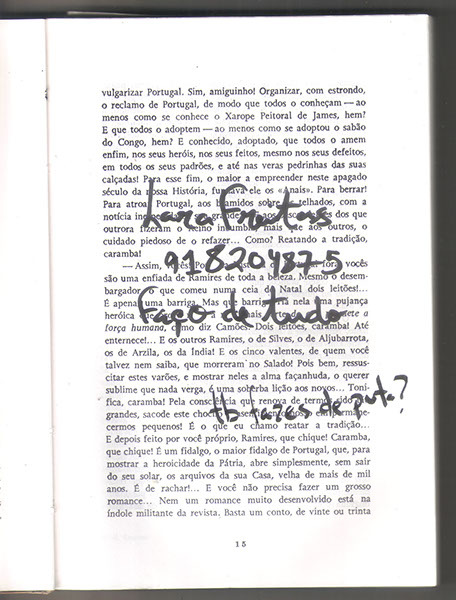 vulgarizar Portugal. Sim, amiguinho! Organizar, com estrondo,
o reclamo de Portugal, de modo que todos o conheçam — ao
menos como se conhece o Xarope Peitoral de James, hem?
E que todos o adoptem — ao menos como se adoptou o sabão
do Congo, hem? E conhecido, adoptado, que todos o amem
enfim, nos seus heróis, nos seus feitos, mesmo nos seus defeitos,
em todos os seus padrões, e até nas veras pedrinhas das suas
calçadas! Para esse fim, o maior a empreender neste apagado
século da nossa História, fundava ele os «Anais». Para berrar!
Para atroar Portugal, aos bramidos sobre os telhados, com a
notícia inesperada da sua grandeza! E aos descendentes dos que
outrora fizeram o Reino incumbia, mais que aos outros, o
cuidado piedoso de o refazer... Como? Reatando a tradição,
caramba!
Lara
918204875
Faço de tudo
— Assim, vocês! Por essa história de Portugal fora, vocês
são uma enfiada de Ramires de toda a beleza. Mesmo o desem-
bargador, o que comeu numa ceia de Natal dois leitões!...
É apenas uma barriga. Mas que barriga! Há nela uma pujança
heróica que prova a raça, a raça mais forte do que promete a
força humana, como diz Camões. Dois leitões, caramba! Até
enternece!... E os outros Ramires, o de Silves, o de Aljubarrota,
os de Arzila, os da Índia! E os cinco valentes, de quem você
talvez nem saiba, que morreram no Salado! Pois bem, ressus-
citar estes varões, e mostrar neles a alma façanhuda, o querer
sublime que nada verga, é uma soberba lição aos novos... Toni-
fica, caramba! Pela consciência que renova de termos sido tão
grandes, sacode este chocho
cermos pequenos! É o que eu chamo reatar a tradição...
tb fazes de puta?
E depois feito por você próprio, Ramires, que chique! Caramba,
que chique! É um fidalgo, o maior fidalgo de Portugal, que, para
mostrar a heroicidade da Pátria, abre simplesmente, sem sair
do seu solar, os arquivos da sua Casa, velha de mais de mil
anos. É de rachar!... E você não precisa fazer um grosso
romance... Nem um romance muito desenvolvido está na
índole militante da revista. Basta um conto, de vinte ou trinta
15